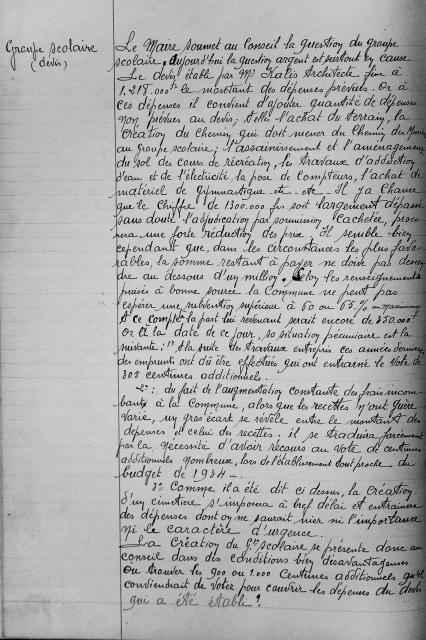 Groupe scolaire
(devis)
Le Maire soumet au Conseil la question du groupe
scolaire, aujourd'hui la question argent est surtout en cause
Le devis établi par Mr Architecte fixe à
1.218.000 frs le montant des dépenses prévues. Or à
ces dépenses il convient d'ajouter quantité de dépenses
non prévues au devis; telles l'achat du terrain, la
création du chemin, qui doit mener du Chemin des
au groupe scolaire; l'assainissement et l'aménagement
du sol des cours de récréation, les travaux d'adduction
d'eau et de l'électricité, la pose de compteurs, l'achat de
matériel de gymnastique etc etc Il y a chance
que le chiffre de 1300.000 frs soit largement dépassé
sans doute l'adjudication par soumission cachetée, procu
rera une forte réduction des prix. Il semble bien
cependant que, dans les circonstances les plus favo
rables, la somme restant à payer ne doive pas descen
dre au dessous d'un million. Selon les renseignements
puisés à bonne source la Commune ne peut pas
espérer une subvention supérieure à 60 ou 65% au maximum
A ce compte la part lui revenant serait encore de 350.000 frs
Or à la date de ce jour, sa situation pécuniaire est la
suivante: 1º A la suite de travaux entrepris ces années dernières
des emprunts ont dû être effectués qui ont entraîné le vote de
305 centimes additionnels.
2º: du fait de l'augmentation constante des frais incom
bants à la Commune, alors que les recettes n'ont guère
varié, un gros écart se révèle entre le montant des
dépenses et celui des recettes. il se traduira forcément
par la nécessité d'avoir recours au vote de centimes
additionnels nombreux, lors de l'établissement tout proche du
budget de 1934 -
3º Comme il a été dit ci dessus, la création
d'un cimetière s'imposera à bref délai et entraînera
des dépenses dont on ne saurait nier ni l'importance
ni le caractère d'urgence.
La création du Gpe scolaire se présente donc au
conseil dans des conditions bien désavantageuses
Où trouver les 900 ou 1.000 centimes additionnels qu'il
conviendrait de voter pour couvrir les dépenses du devis
qui a été établi?